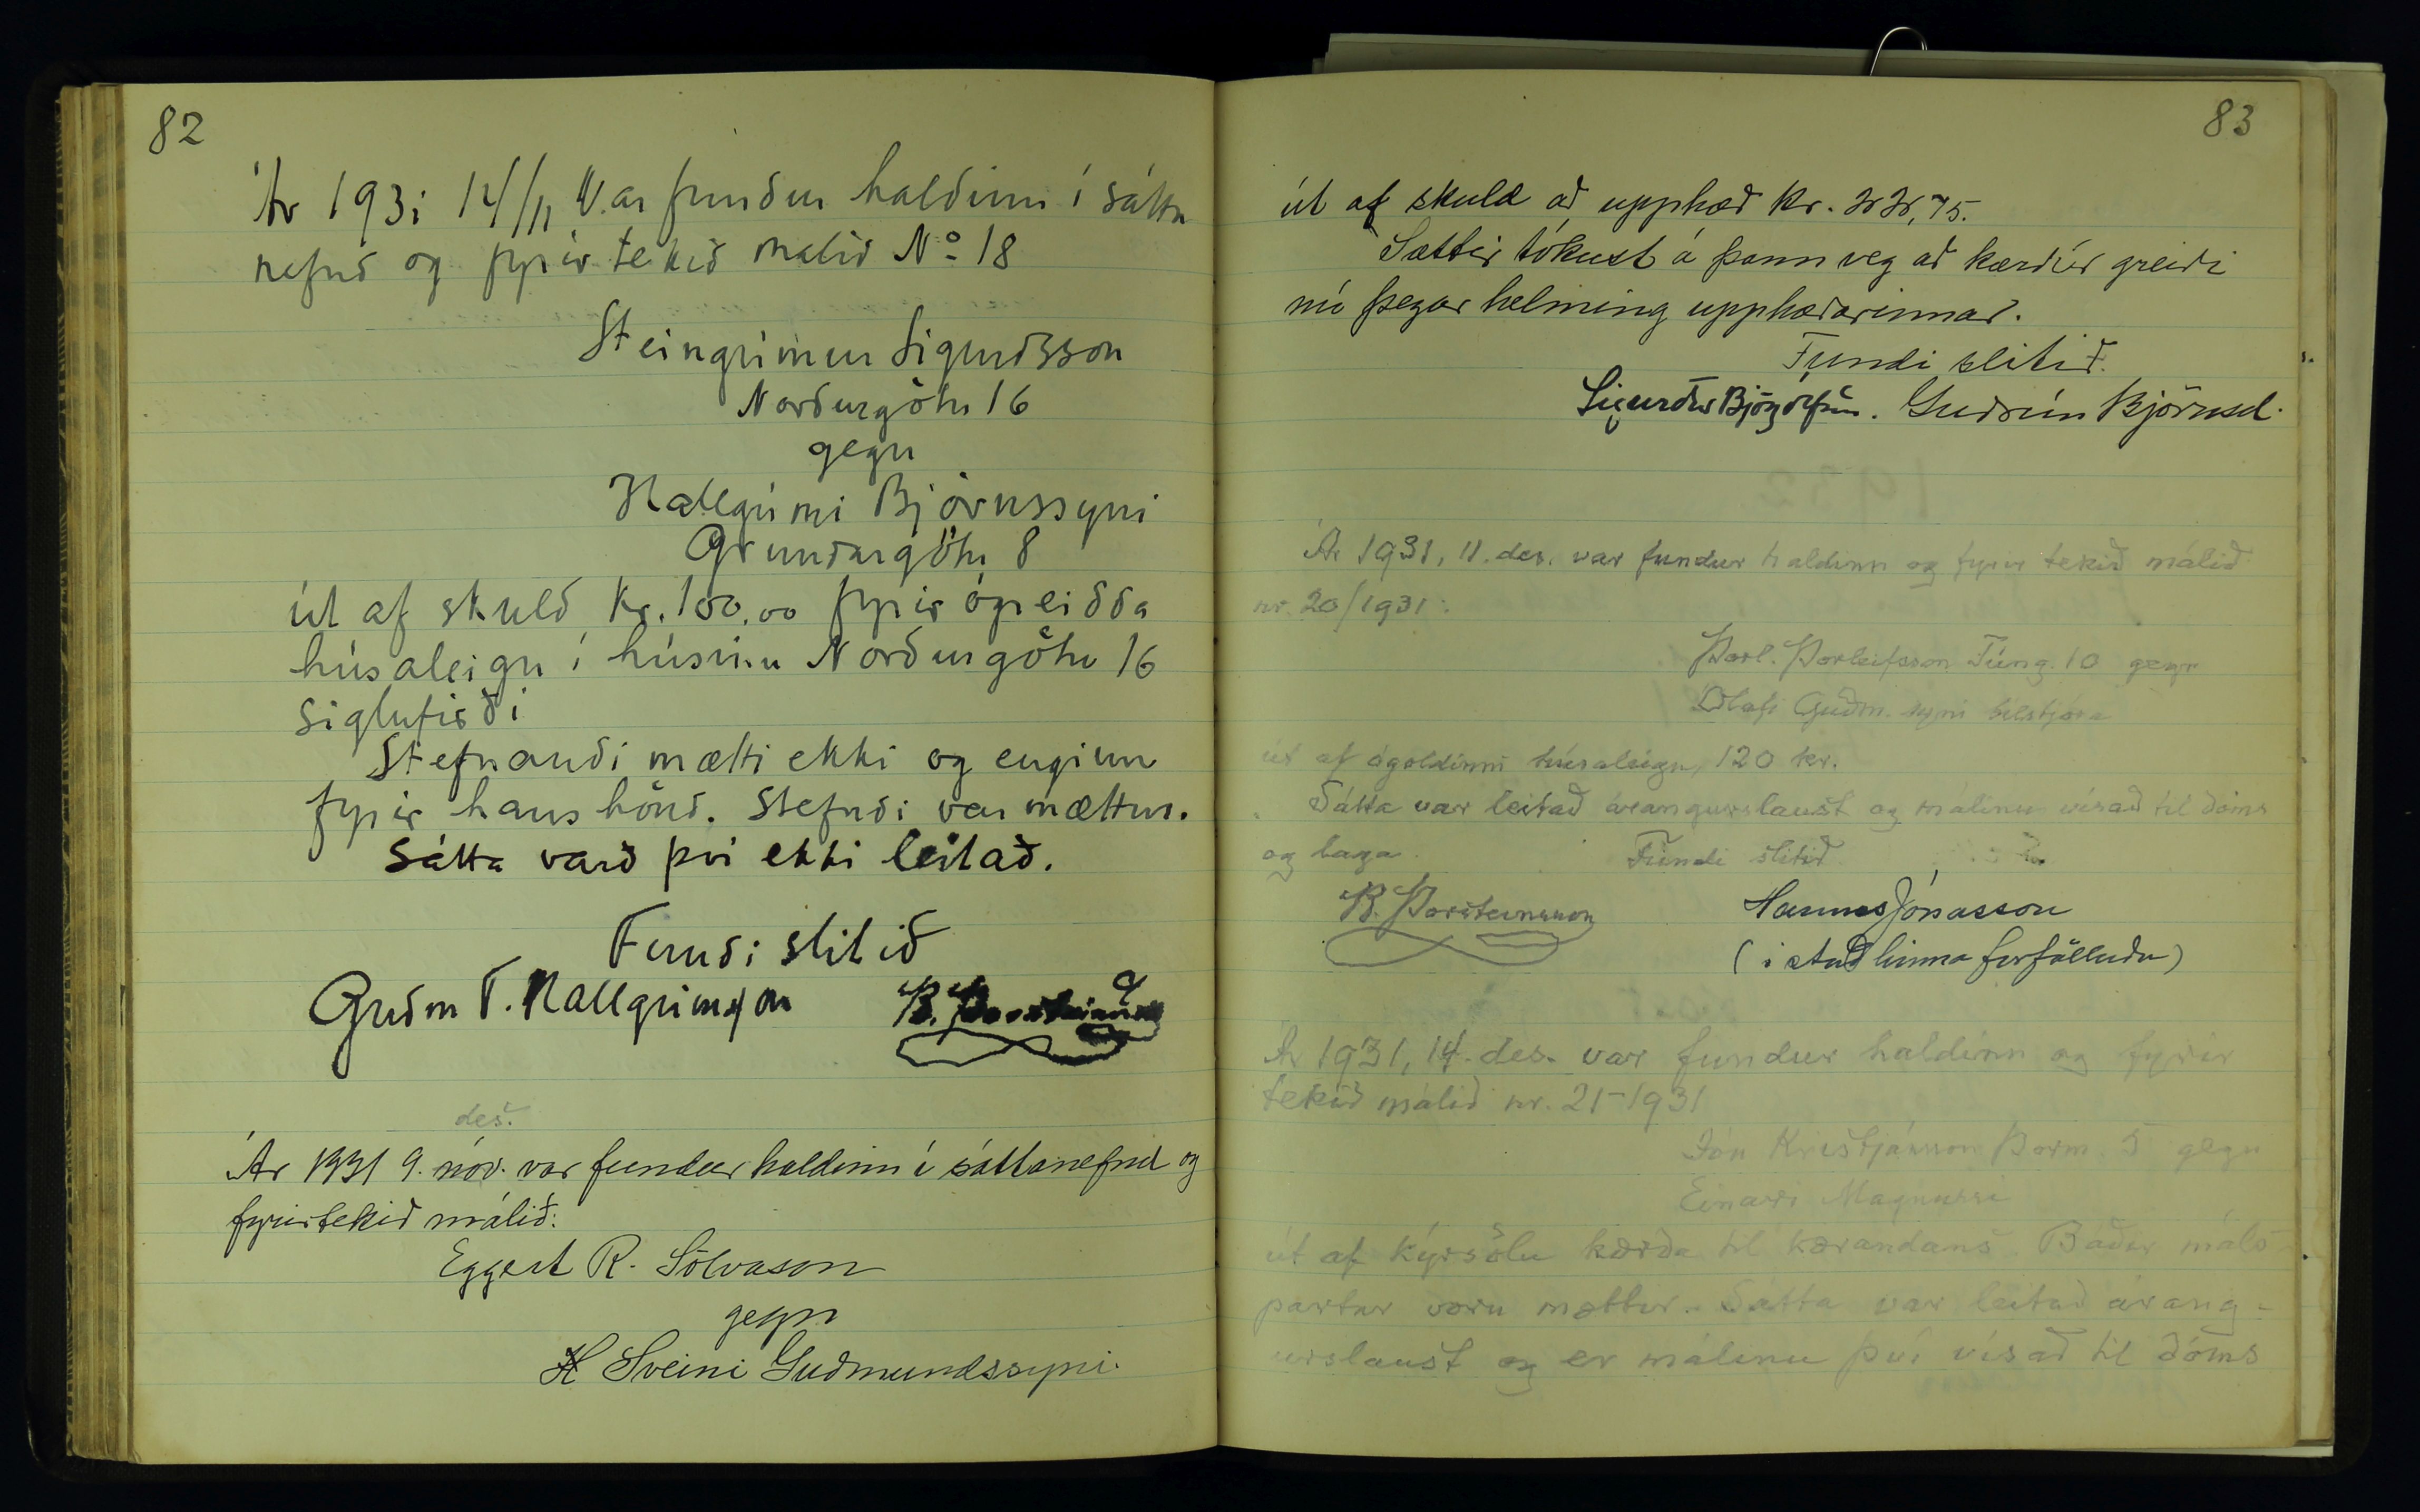 82
Ár 1931 14/11 Var fundur haldinn í sátta
nefnd og fyrir tekið malið Nº 18
Steingrímur Sigurðsson
Norðurgötu 16
gegn
Hallgrími Björnssyni
Grundargötu 8
út af skuld kr. 100.00 fyrir ógreidda
húsaleigu í húsinu Norðurgötu 16
Siglufirði
Stefnandi mætti ekki og enginn
fyrir hans hönd. Stefndi var mættur.
Sátta varð því ekki leitað.
Fundi slitið
Guðm T. Hallgrimsson
B. Þorsteinsson
des.
Ár 1931 9. nóv. var fundur haldinn í sáttanefnd og
fyrirtekið málið:
Eggert R. Sölvason
gegn
Sveini Guðmundssyni.
83
út af skuld að upphæð kr.
Sættir tókust á þann veg að kærður greiði
nú þegar helming upphæðarinnar.
Fundi slitið.
Guðrún Björnsd.
Ár 1931, 11. des. var fundur haldinn og fyrir tekið málið
nr. 20/1931:
Þorl. Þorleifsson Túng. 10 gegn
Ólafi Guðm.syni bílstjóra
út af ógoldinni húsaleigu, 120 kr.
Sátta var leitað árangurslaust og málinu vísað til dóms
og laga.
Fundi slitið
B. Þorsteinsson
Hannes Jónasson
(í stað hinna forfölluðu)
Ár 1931, 14. des. var fundur haldinn og fyrir
tekið málið nr. 21-1931
Jón Kristjánsson Þorm. 5 gegn
Einari Magnussi
út af kýrsölu kærða til kærandans. Báðir máls
partar voru mættir. Sátta var leitað árang-
urslaust og er málinu því vísað til dóms